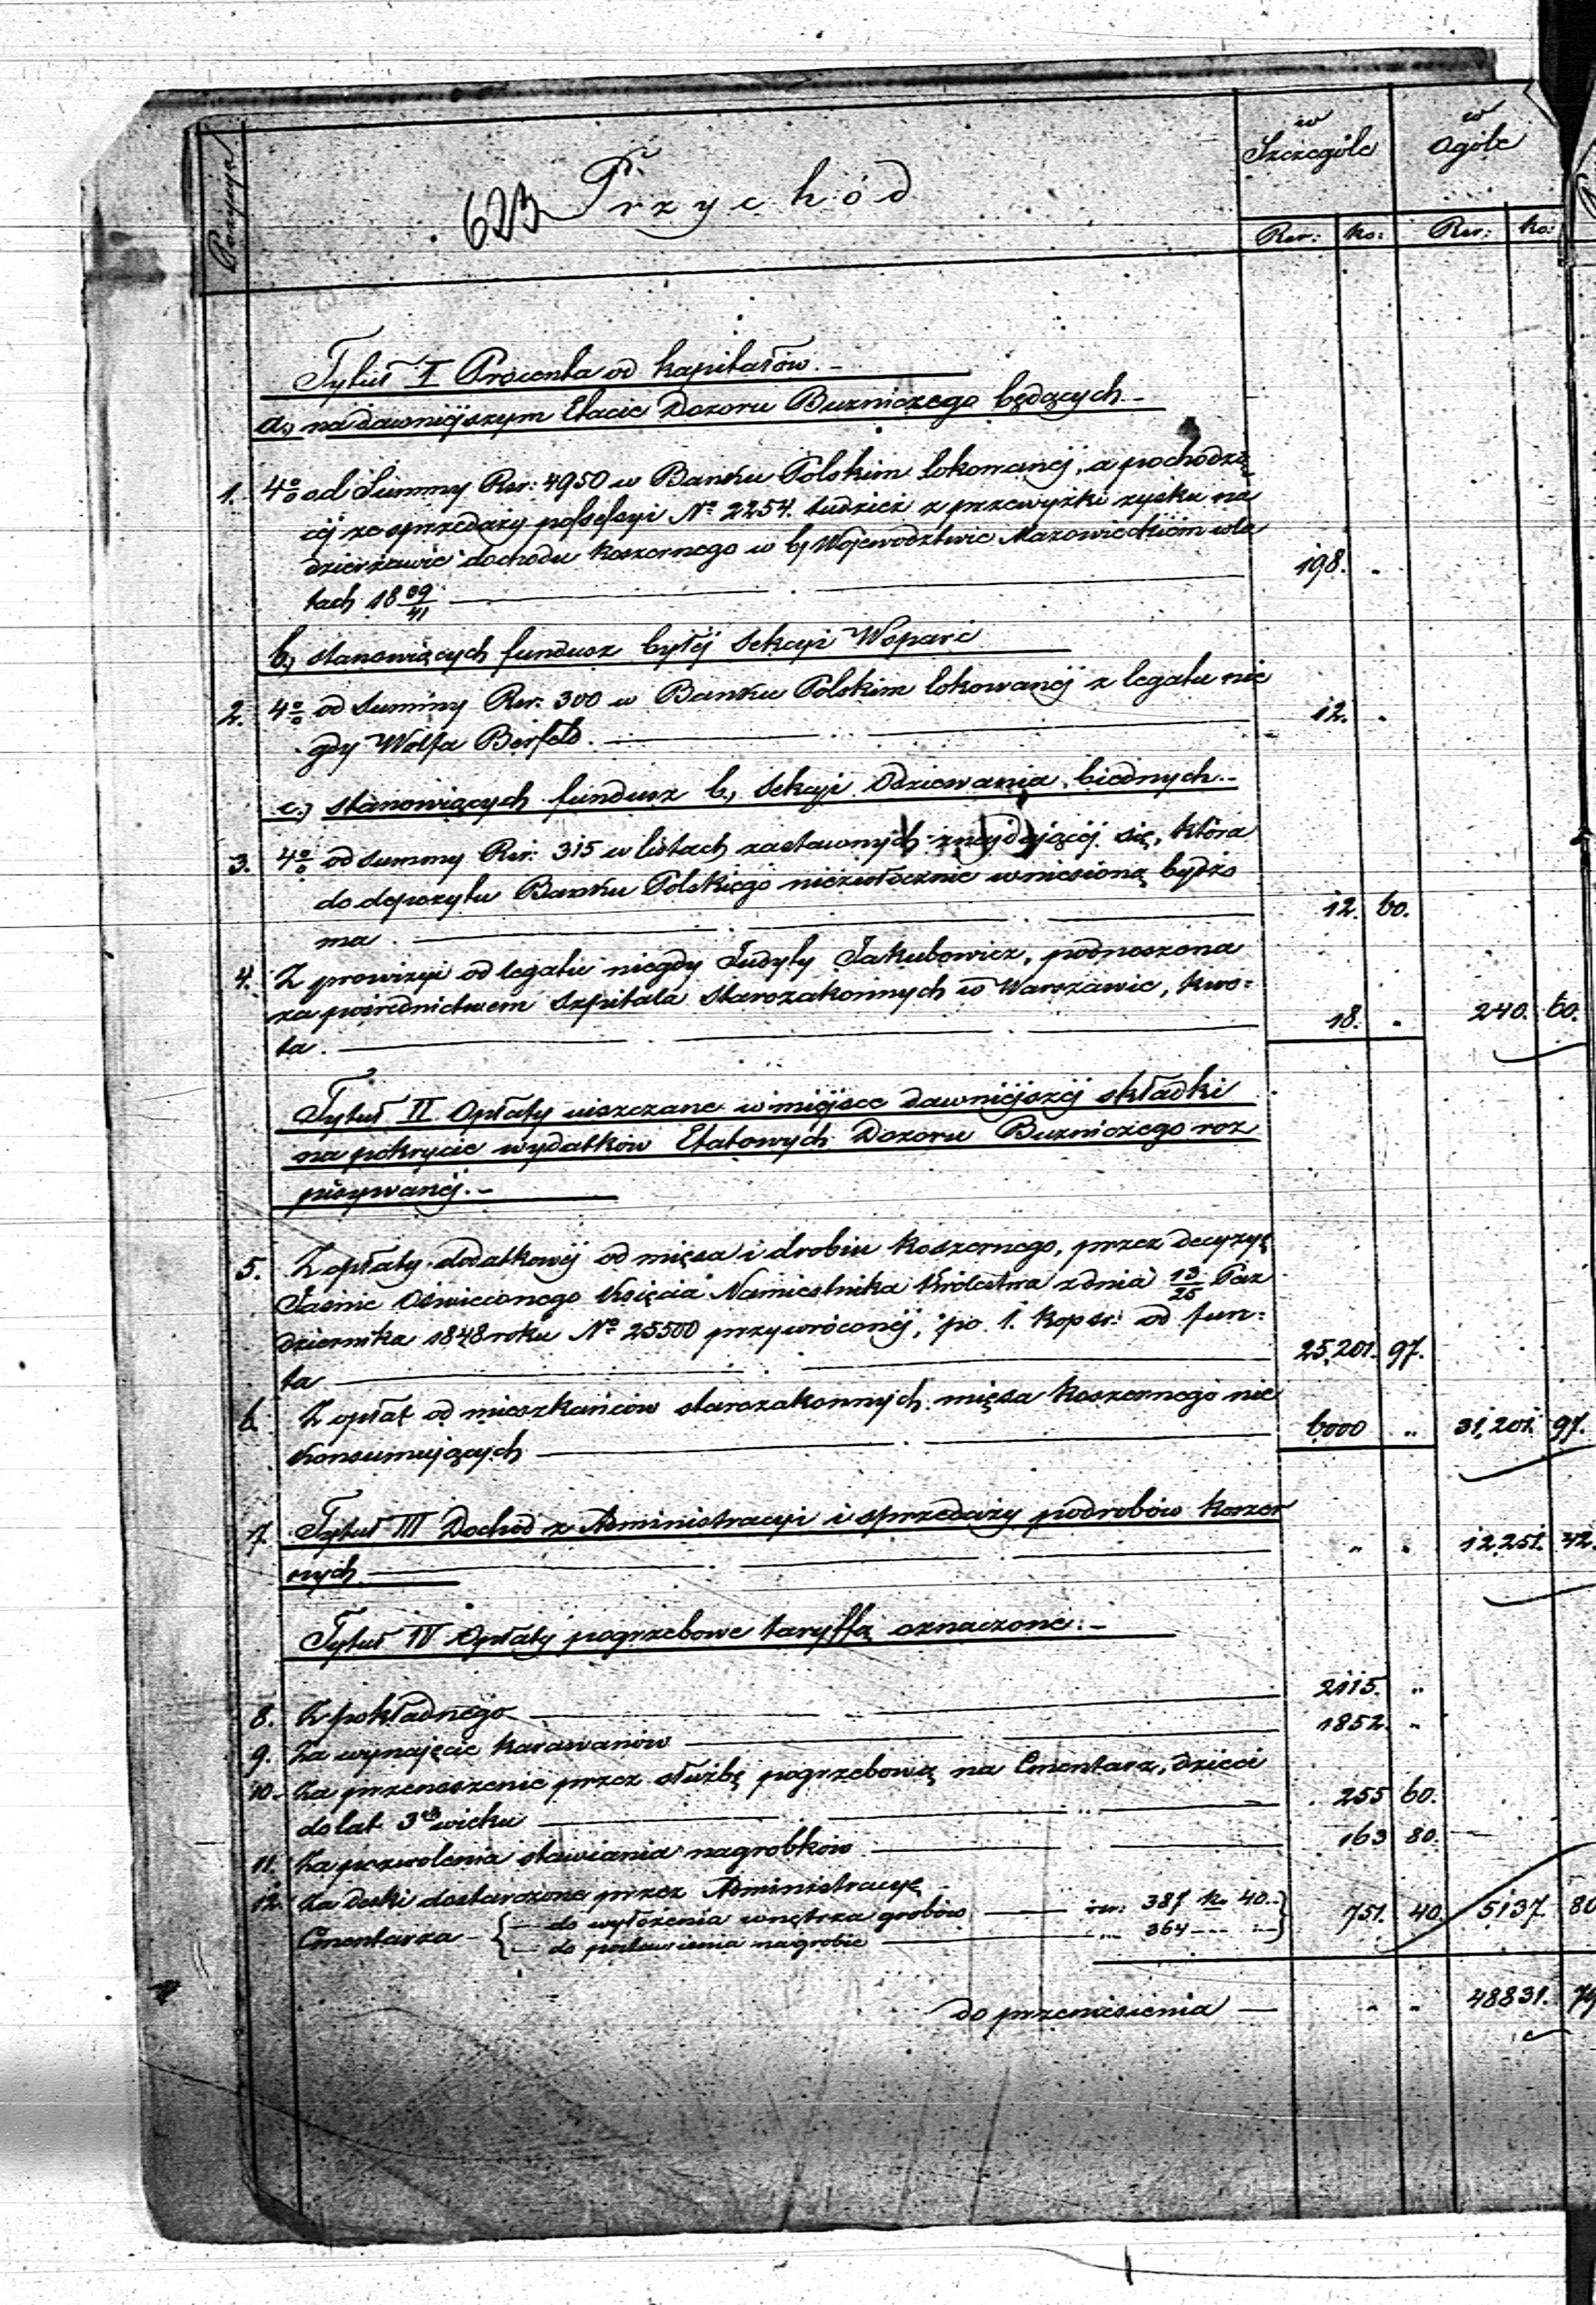 Pozycya
623 Przychód
w Szczególe
w Ogóle
Rsr: ko: Rsr: ko:
Tytuł I Procenta od kapitałów.-
a.) na dawniejszym Etacie Dozoru Bużniczego będących.-
1. 4% od Summy Rsr: 4950 w Banku Polskim lokowanej, a pochodzą
cej ze sprzedaży possessyi No 2254. tudzież z przewyżki zysku na
dzierżawie dochodu koszernego w b. Województwie Mazowieckiem w la
tach 18 39/41 198. "
b.) stanowiących fundusz byłéj Sekcyi Wsparć
2. 4% od Summy Rsr: 300 w Banku Polskim lokowanéj z legatu nie
gdy Wolfa Berfeld. 12. "
c.) stanowiących fundusz b. Sekcyi Odziewania biednych.-
3. 4% od Summy Rsr: 315 w listach zastawnych znajdującéj się, która
do depozytu Banku Polskiego niezwłocznie wniesioną bydź
ma 12. 60.
4. Z prowizyi od legatu niegdy Judyty Jakubowicz, podnoszona
za pośrednictwem Szpitala Starozakonnych w Warszawie, kwo=
ta. 18. " 240. 60.
Tytuł II Opłaty uiszczane w miejsce dawniejszéj składki
na pokrycie wydatków Etatowych Dozoru Bużniczego roz
pisywanéj.-
5. Z opłaty dodatkowéj od mięsa i drobiu koszernego, przez decyzyę
Jaśnie Oświeconego Księcia Namiestnika Królestwa z dnia 13/25 Paź
dziernika 1848 roku No 25500 przywróconéj, po 1. kop sr: od fun=
ta 25,201. 97.
6. Z opłat od mieszkańców starozakonnych mięsa koszernego nie
konsumujących 6000 " 31,201. 97.
7. Tytuł III Dochód z Administracyi i sprzedaży podrobów koszer
nych " " 12,251. 42.
Tytuł IV Opłaty pogrzebowe taryffą oznaczone.-
8. Z pokładnego 2115. "
9. Za wynajęcie karawanów 1852. "
10. Za przenoszenie przez służbę pogrzebową na Cmentarz, dzieci
do lat 3ch wieku 255 60.
11. Za pozwolenia stawiania nagrobków 163 80.
12. Za deski dostarczone przez Administracyę
Cmentarza { do wyłożenia wnętrza grobów rsr: 387 k. 40.
do postawienia na grobie " 364 " } 751. 40. 5137. 80
do przeniesienia " " 48831. 79